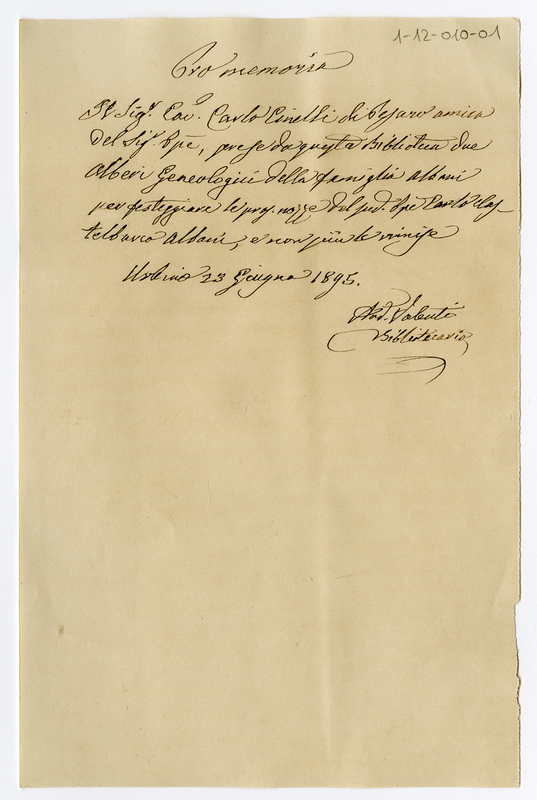 1-12-010-01
Pro memoria
Il Sigr. Cav. Carlo Cinelli di Pesaro amico
del Sigr. Ppe, prese da questa Biblioteca due
Alberi Geneologici della famiglia Albani
per festeggiare le pros. nozze del pred. Ppe Carlo Cas-
telbarco Albani, e non più le rinise
Urbino 23 Giugno 1895.
Valenti
Bibliotecario